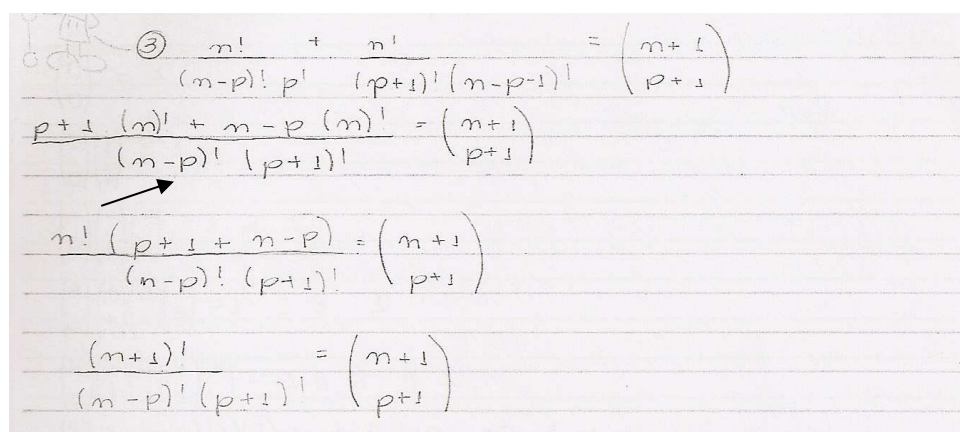 ③ n!/((n-p)! p!) + n!/((p+1)! (n-p-1)!) = (n+1 p+1)
p+1 (n)! + n-p (n)!/((n-p)! (p+1)!) = (n+1 p+1)
n! (p+1 + n-p)/((n-p)! (p+1)!) = (n+1 p+1)
(n+1)!/((n-p)! (p+1)!) = (n+1 p+1)